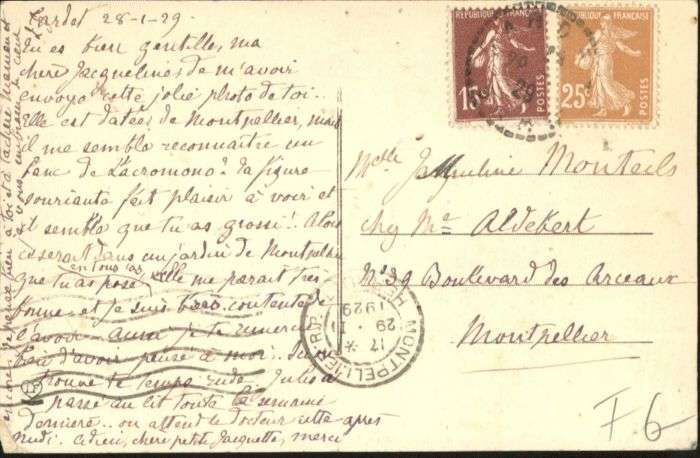 Tardet 28-1-29.
Tu es bien gentille, ma
chère Jacqueline, de m'avoir
envoyé cette jolie photo de toi..
Elle est datée de Montpellier, mais
il me semble reconnaître un
banc de Lacromono? ta figure
souriante fait plaisir à voir et
il semble que tu as grossi! Alors
ce serait dans un jardin de Montpellier
que tu as posé
en tous cas elle me paraît très
bonne et je suis très contente de
l'avoir aussi je te remercie
d'avoir pensé à moi..
trouve le temps rude. Julio a
passé au lit toute la semaine
dernière.. on attend le docteur cette après
midi. Adieu, chère petite Jacquette, merci
encore je pense bien à toi et à
RÉPUBLIQUE FRANÇAISE
15c
POSTES
RÉPUBLIQUE FRANÇAISE
25c
POSTES
Melle Jacqueline Monteils
chez Me Aldekert
No 39 Boulevard des Arceaux
Montpellier
MONTPELLIER R.P.
17 *
29 . I
1929
F6